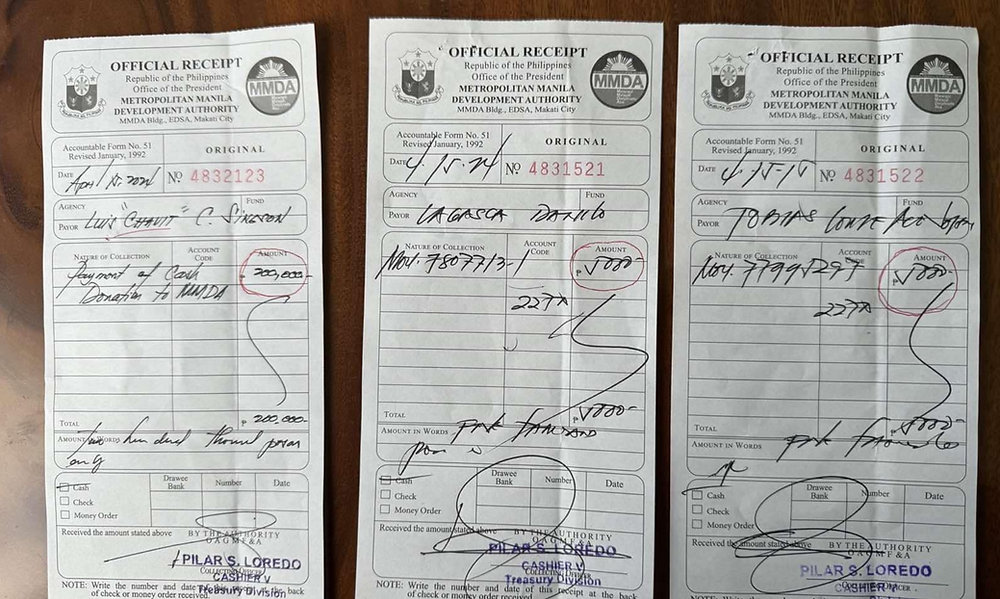 OFFICIAL RECEIPT
Republic of the Philippines
Office of the President
METROPOLITAN MANILA
DEVELOPMENT AUTHORITY
MMDA Bldg., EDSA, Makati City
MMDA
Accountable Form No. 51
Revised January, 1992
ORIGINAL
DATE April 15, 2024
Nº 4832123
AGENCY
FUND
PAYOR LUIS "CHAVIT" C. SINGSON
NATURE OF COLLECTION
ACCOUNT CODE
AMOUNT
Payment of Cash
Donation to MMDA
200,000-
TOTAL
₱ 200,000-
AMOUNT IN WORDS two hundred thousand pesos
only
Cash
Check
Money Order
Drawee Bank
Number
Date
Received the amount stated above
BY THE AUTHORITY
OAGMF&A
PILAR S. LOREDO
COLLECTING OFFICER
CASHIER V
Treasury Division
NOTE: Write the number and date of this receipt at the back
of check or money order received.
OFFICIAL RECEIPT
Republic of the Philippines
Office of the President
METROPOLITAN MANILA
DEVELOPMENT AUTHORITY
MMDA Bldg., EDSA, Makati City
MMDA
Accountable Form No. 51
Revised January, 1992
ORIGINAL
DATE 4.15.24
Nº 4831521
AGENCY
FUND
PAYOR LAGASCA DANILO
NATURE OF COLLECTION
ACCOUNT CODE
AMOUNT
7807713-1
₱ 5000-
227
TOTAL
₱ 5000-
AMOUNT IN WORDS
Cash
Check
Money Order
Drawee Bank
Number
Date
Received the amount stated above
BY THE AUTHORITY
OAGMF&A
PILAR S. LOREDO
COLLECTING OFFICER
CASHIER V
Treasury Division
NOTE: Write the number and date of this receipt at the back
of check or money order received.
OFFICIAL RECEIPT
Republic of the Philippines
Office of the President
METROPOLITAN MANILA
DEVELOPMENT AUTHORITY
MMDA Bldg., EDSA, Makati City
MMDA
Accountable Form No. 51
Revised January, 1992
ORIGINAL
DATE
Nº 4831522
AGENCY
FUND
PAYOR TOBIAS
NATURE OF COLLECTION
ACCOUNT CODE
AMOUNT
₱ 5000-
227
TOTAL
₱ 5000-
AMOUNT IN WORDS
Cash
Check
Money Order
Drawee Bank
Number
Date
Received the amount stated above
BY THE AUTHORITY
OAGMF&A
PILAR S. LOREDO
COLLECTING OFFICER
CASHIER V
NOTE: Write the number and date of this receipt at the back